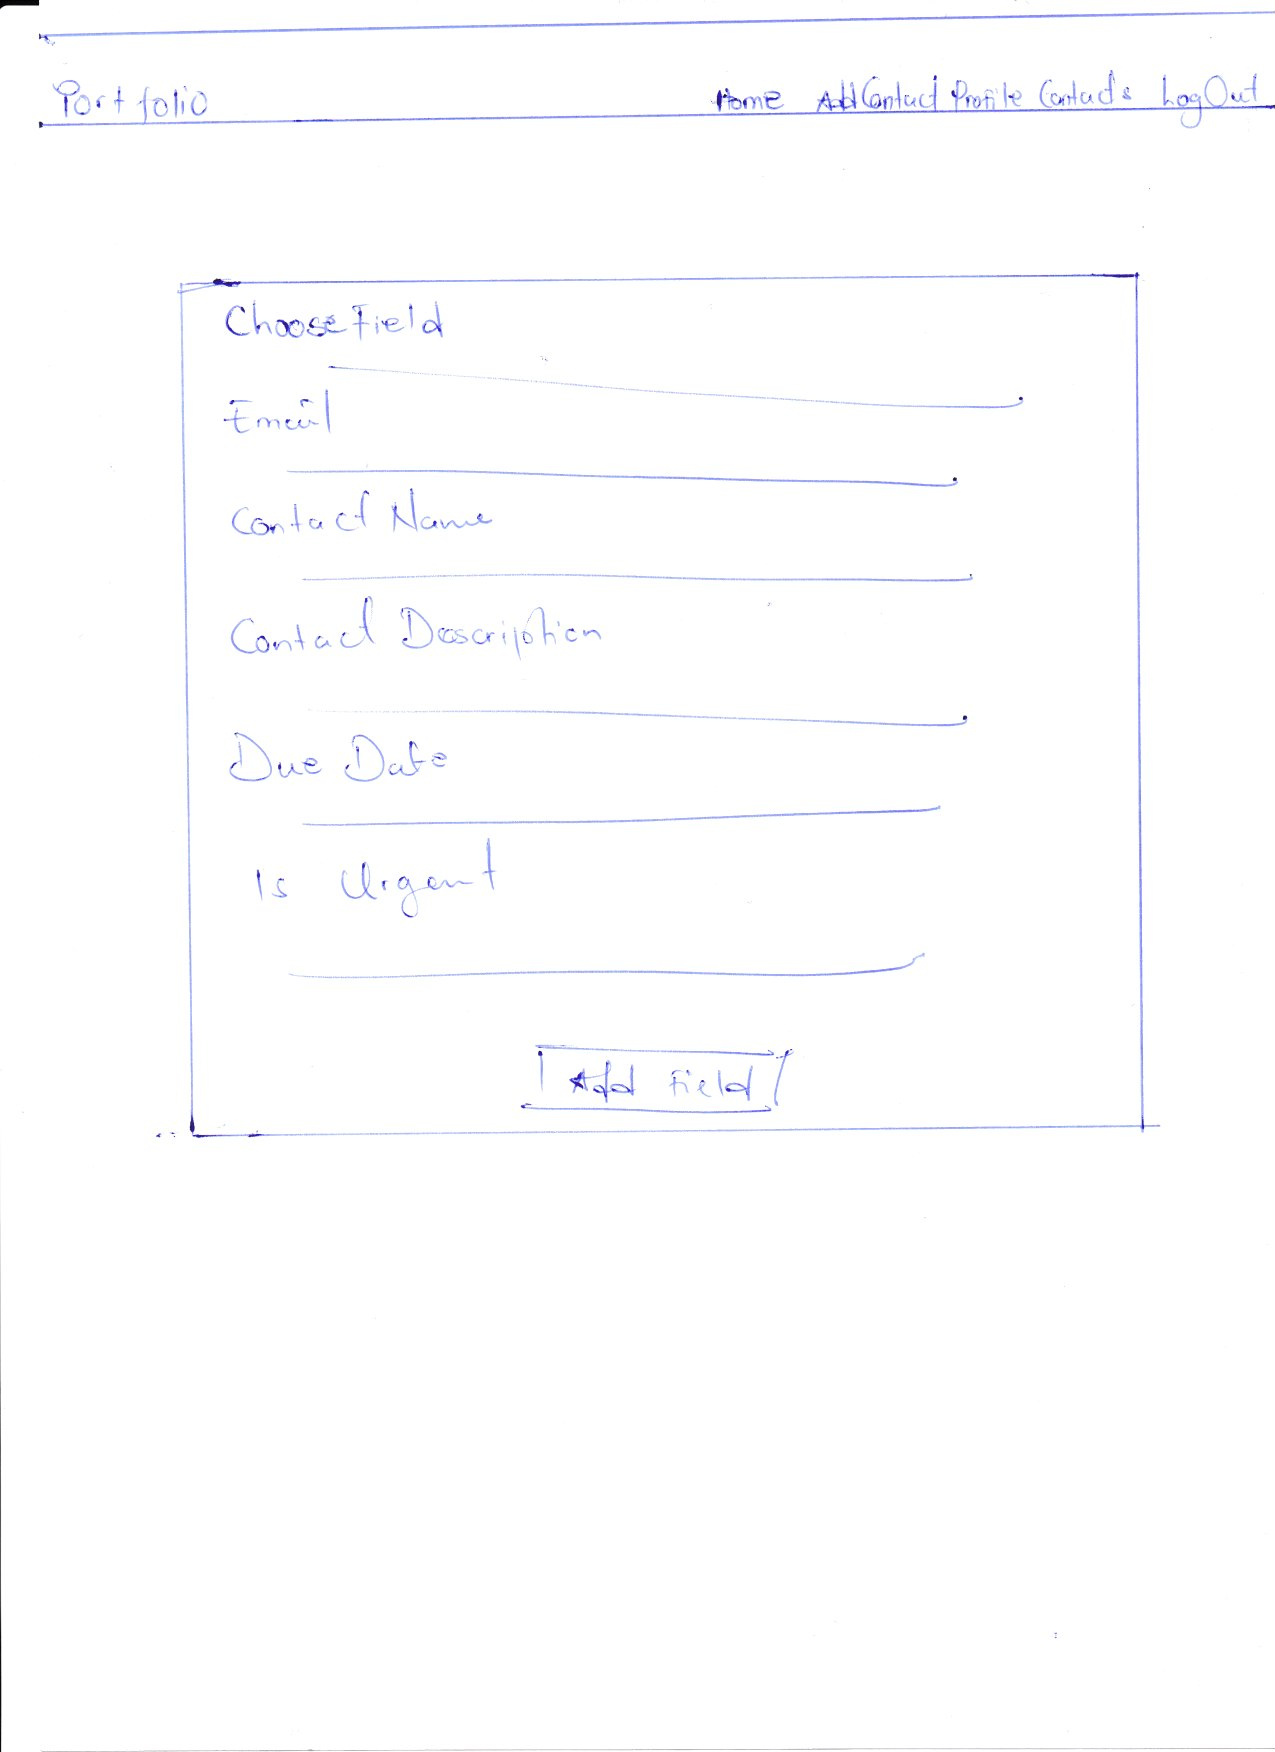 Portfolio Home AddContact Profile Contacts LogOut
Choose Field
Email
Contact Name
Contact Description
Due Date
Is Urgent
Add Field